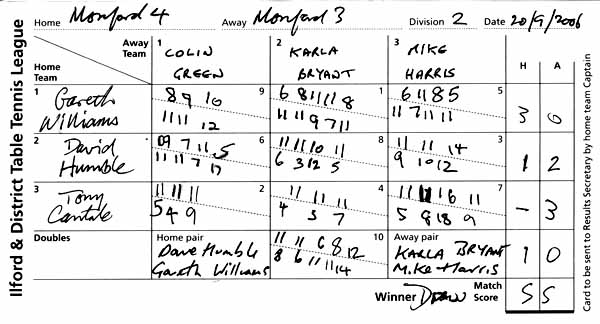 Ilford & District Table Tennis League
Home Monford 4 Away Monford 3 Division 2 Date 20/9/2006
Away Team
Home Team
1 COLIN GREEN
2 KARLA BRYANT
3 MIKE HARRIS
H A
1 Gareth Williams
9
8 9 10
11 11 12
1
6 8 11 11 8
11 11 9 7 11
5
6 11 8 5
11 7 11 11
3 0
2 David Humble
6
7 11 5
11 11 7
8
11 11 10 11
6 3 12 5
3
11 11 14
9 10 12
1 2
3 Tony
2
11 11 11
5 4 9
4
11 11 11
4 3 7
7
11 11 16 11
5 8 18 9
- 3
Doubles
Home pair
Dave Humble
Gareth Williams
10
11 11 6 8 12
8 6 11 11 14
Away pair
KARLA BRYANT
Mike Harris
1 0
Winner Draw Match Score 5 5
Card to be sent to Results Secretary by home team Captain